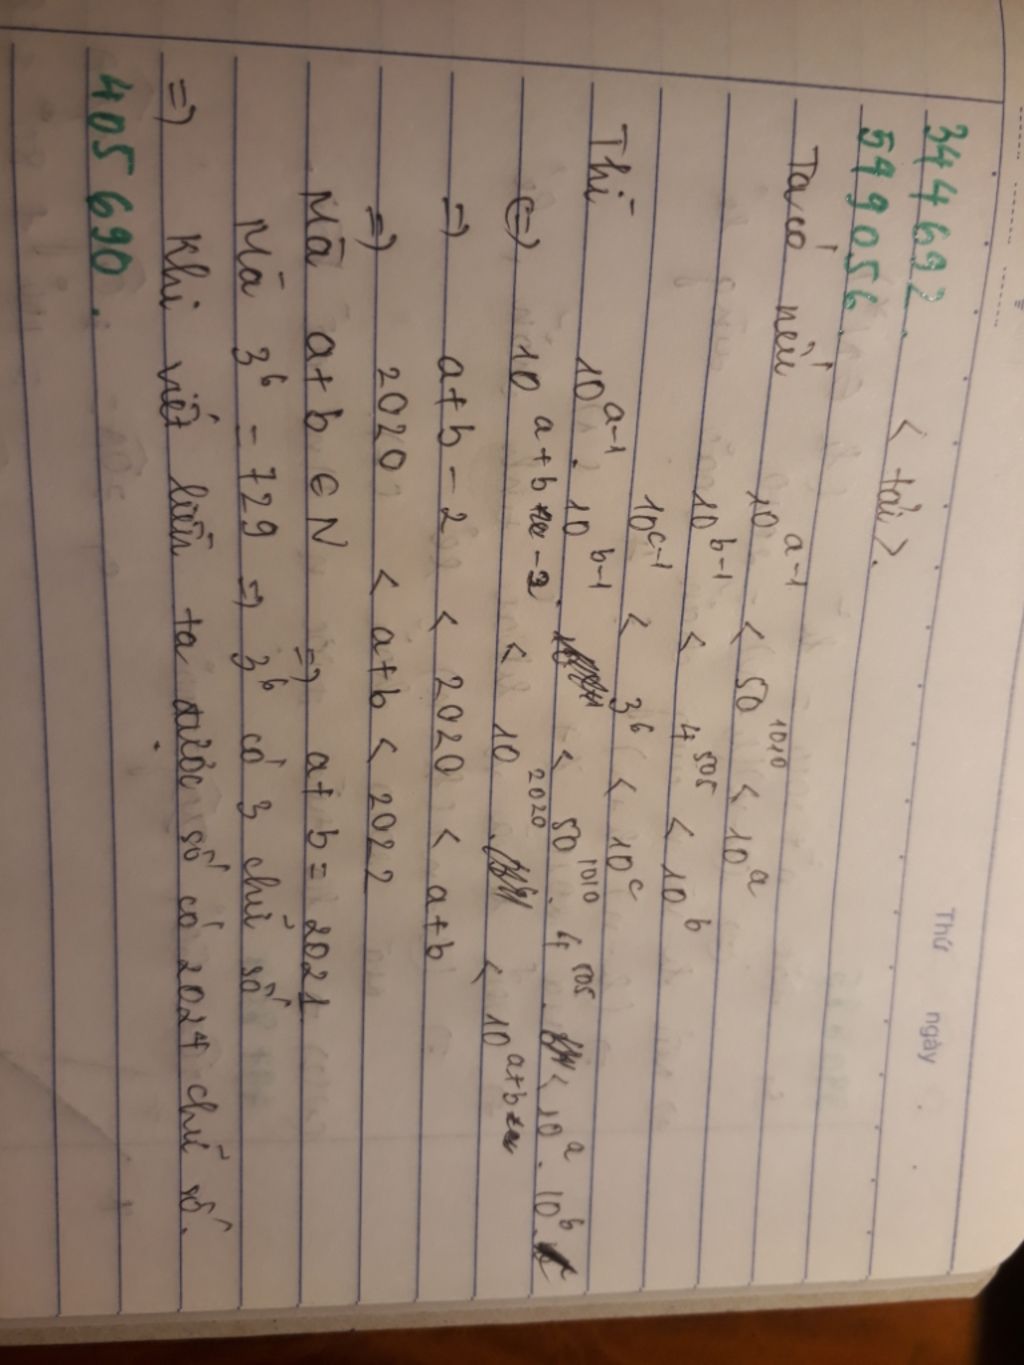 Thứ ngày
344692.
599056 < tải >.
Ta có nếu 10^{a-1} < 50^{1010} < 10^a
10^{b-1} < 4^{505} < 10^b
10^{c-1} < 3^6 < 10^c
Thì 10^{a-1} . 10^{b-1} < 50^{1010} . 4^{505} < 10^a . 10^b
(=) 10^{a+b-2} < 10^{2020} < 10^{a+b}
=) a+b-2 < 2020 < a+b
=) 2020 < a+b < 2022
Mà a+b ∈ N =) a+b = 2021
Mà 3^6 = 729 =) 3^6 có 3 chữ số
=) Khi viết liền ta được số có 2024 chữ số.
405690.